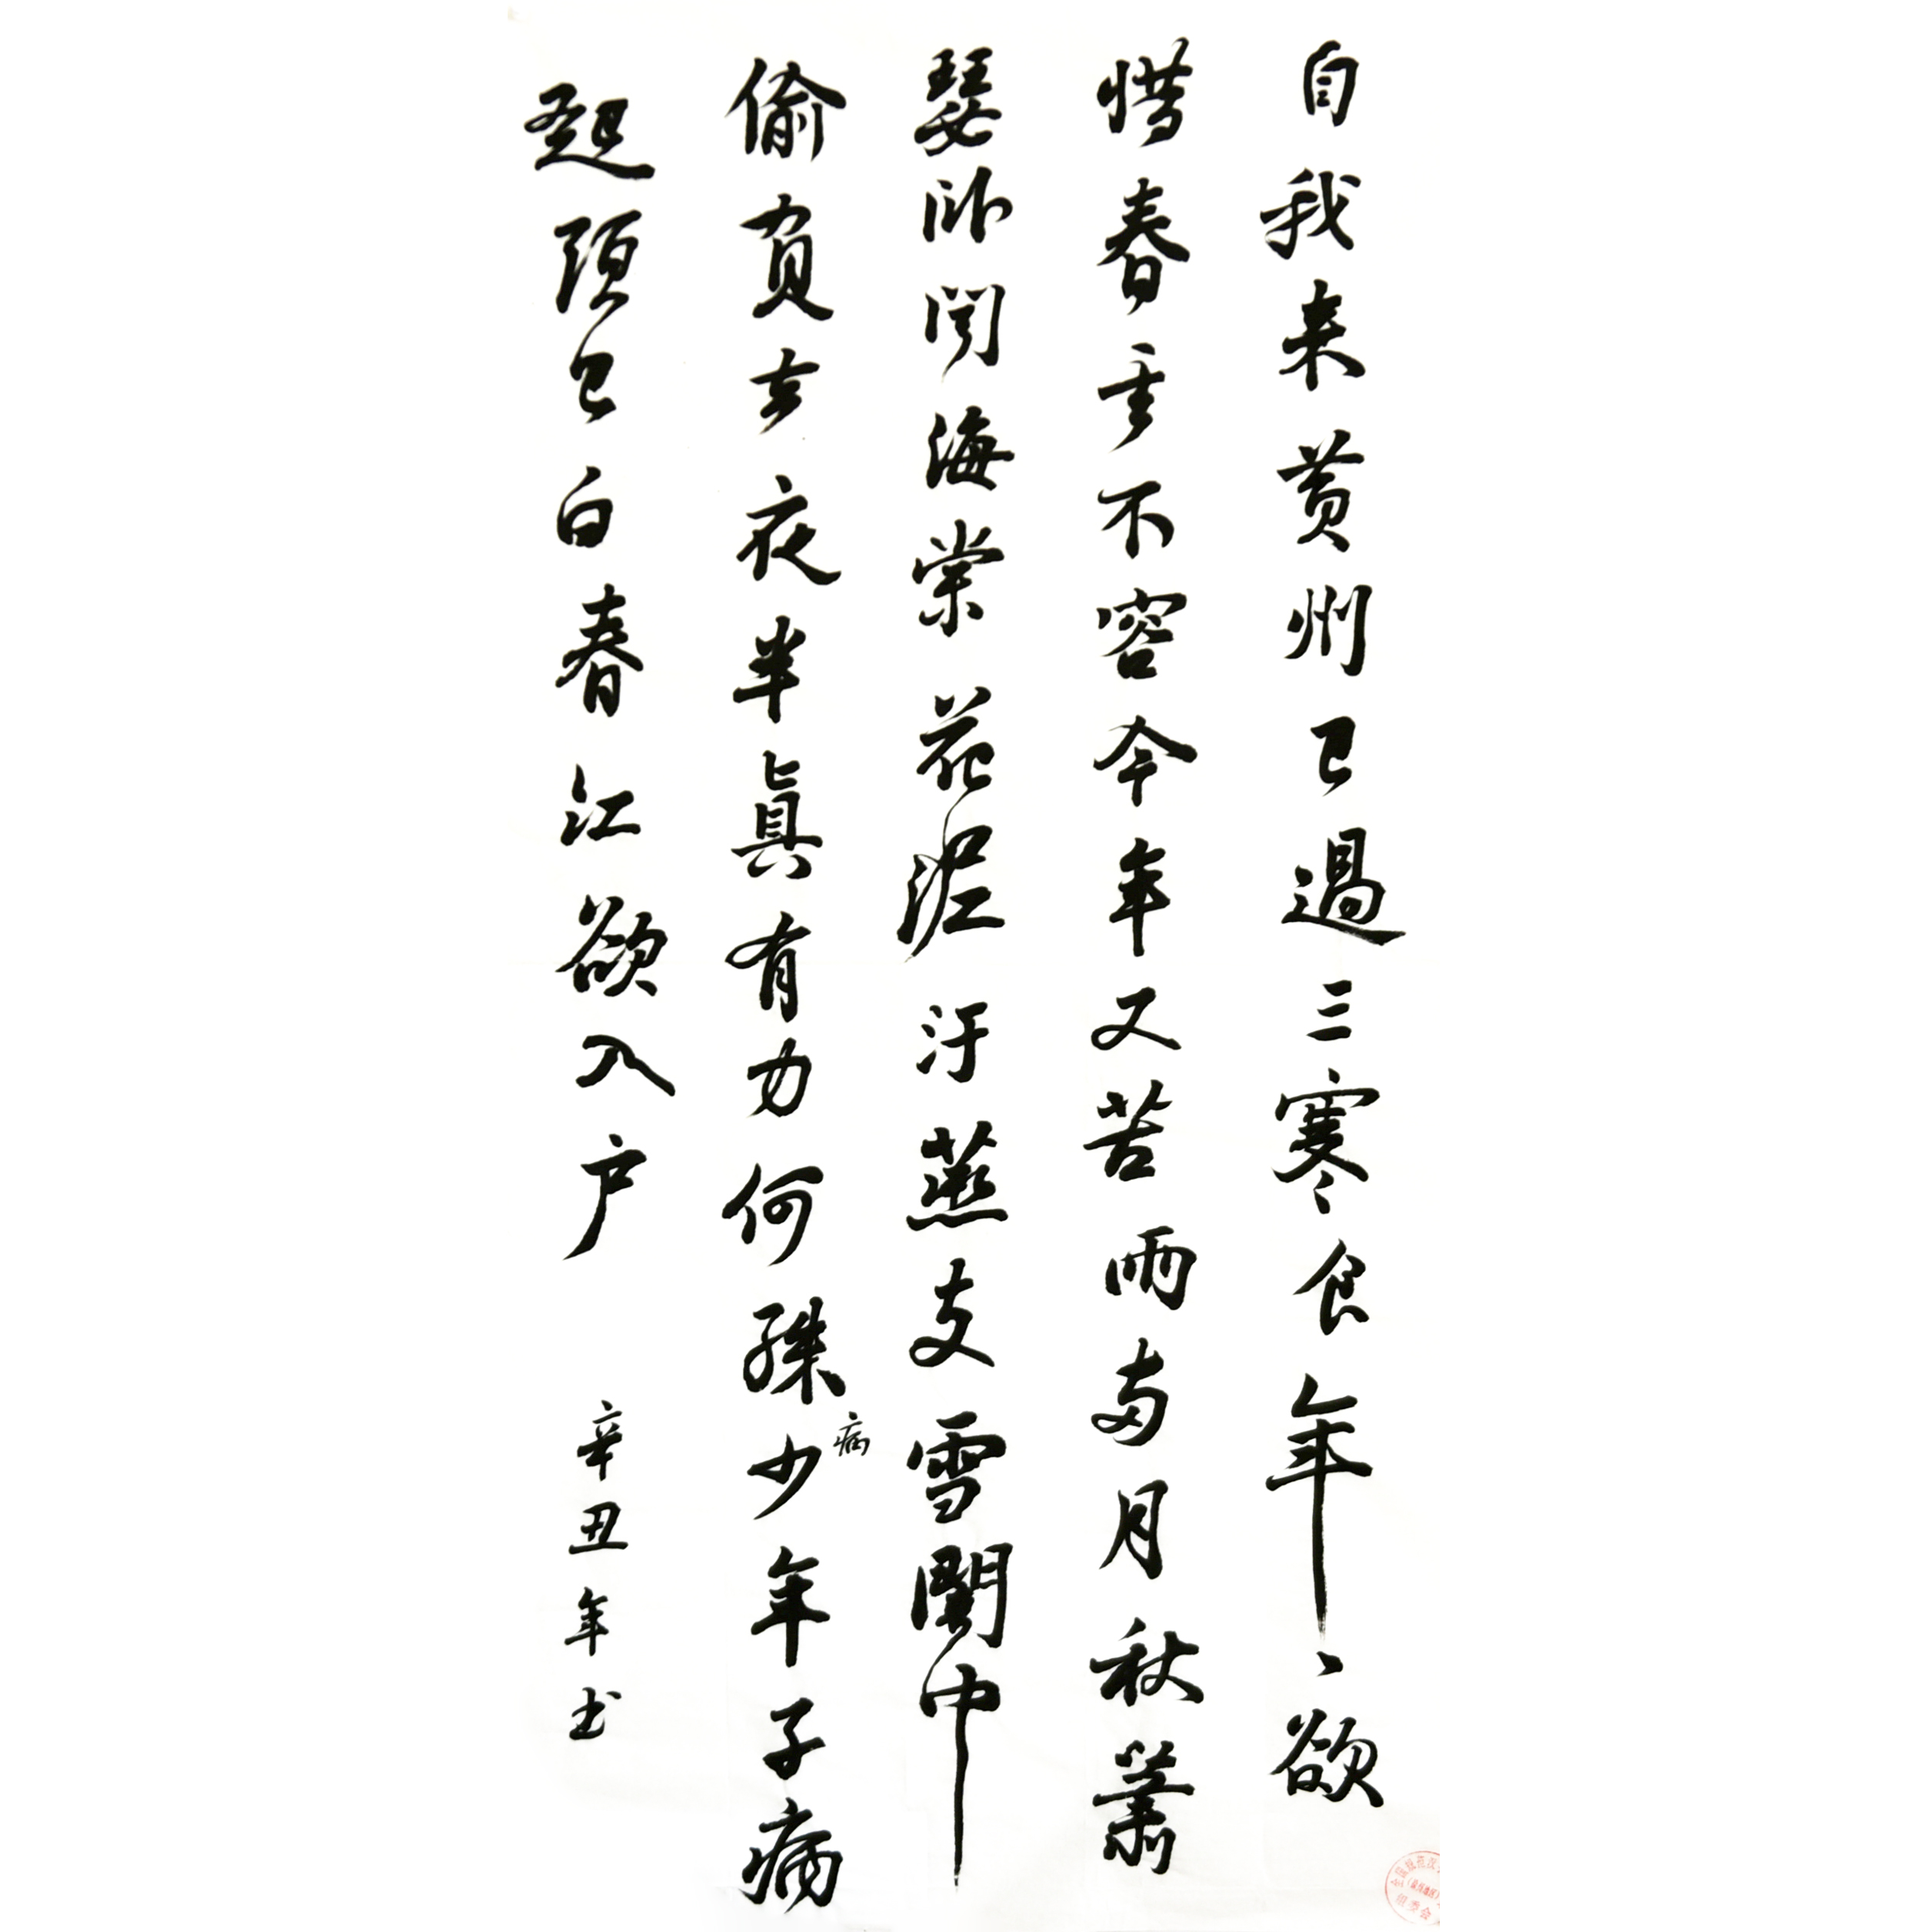 自我来黄州已過三寒食年〻欲
惜春去不容今年又苦雨兩月秋蕭
瑟卧聞海棠花泥汙燕支雪闇中
偷負去夜半眞有力何殊少年子病
病
起頭已白春江欲入户
辛丑年书
组委会